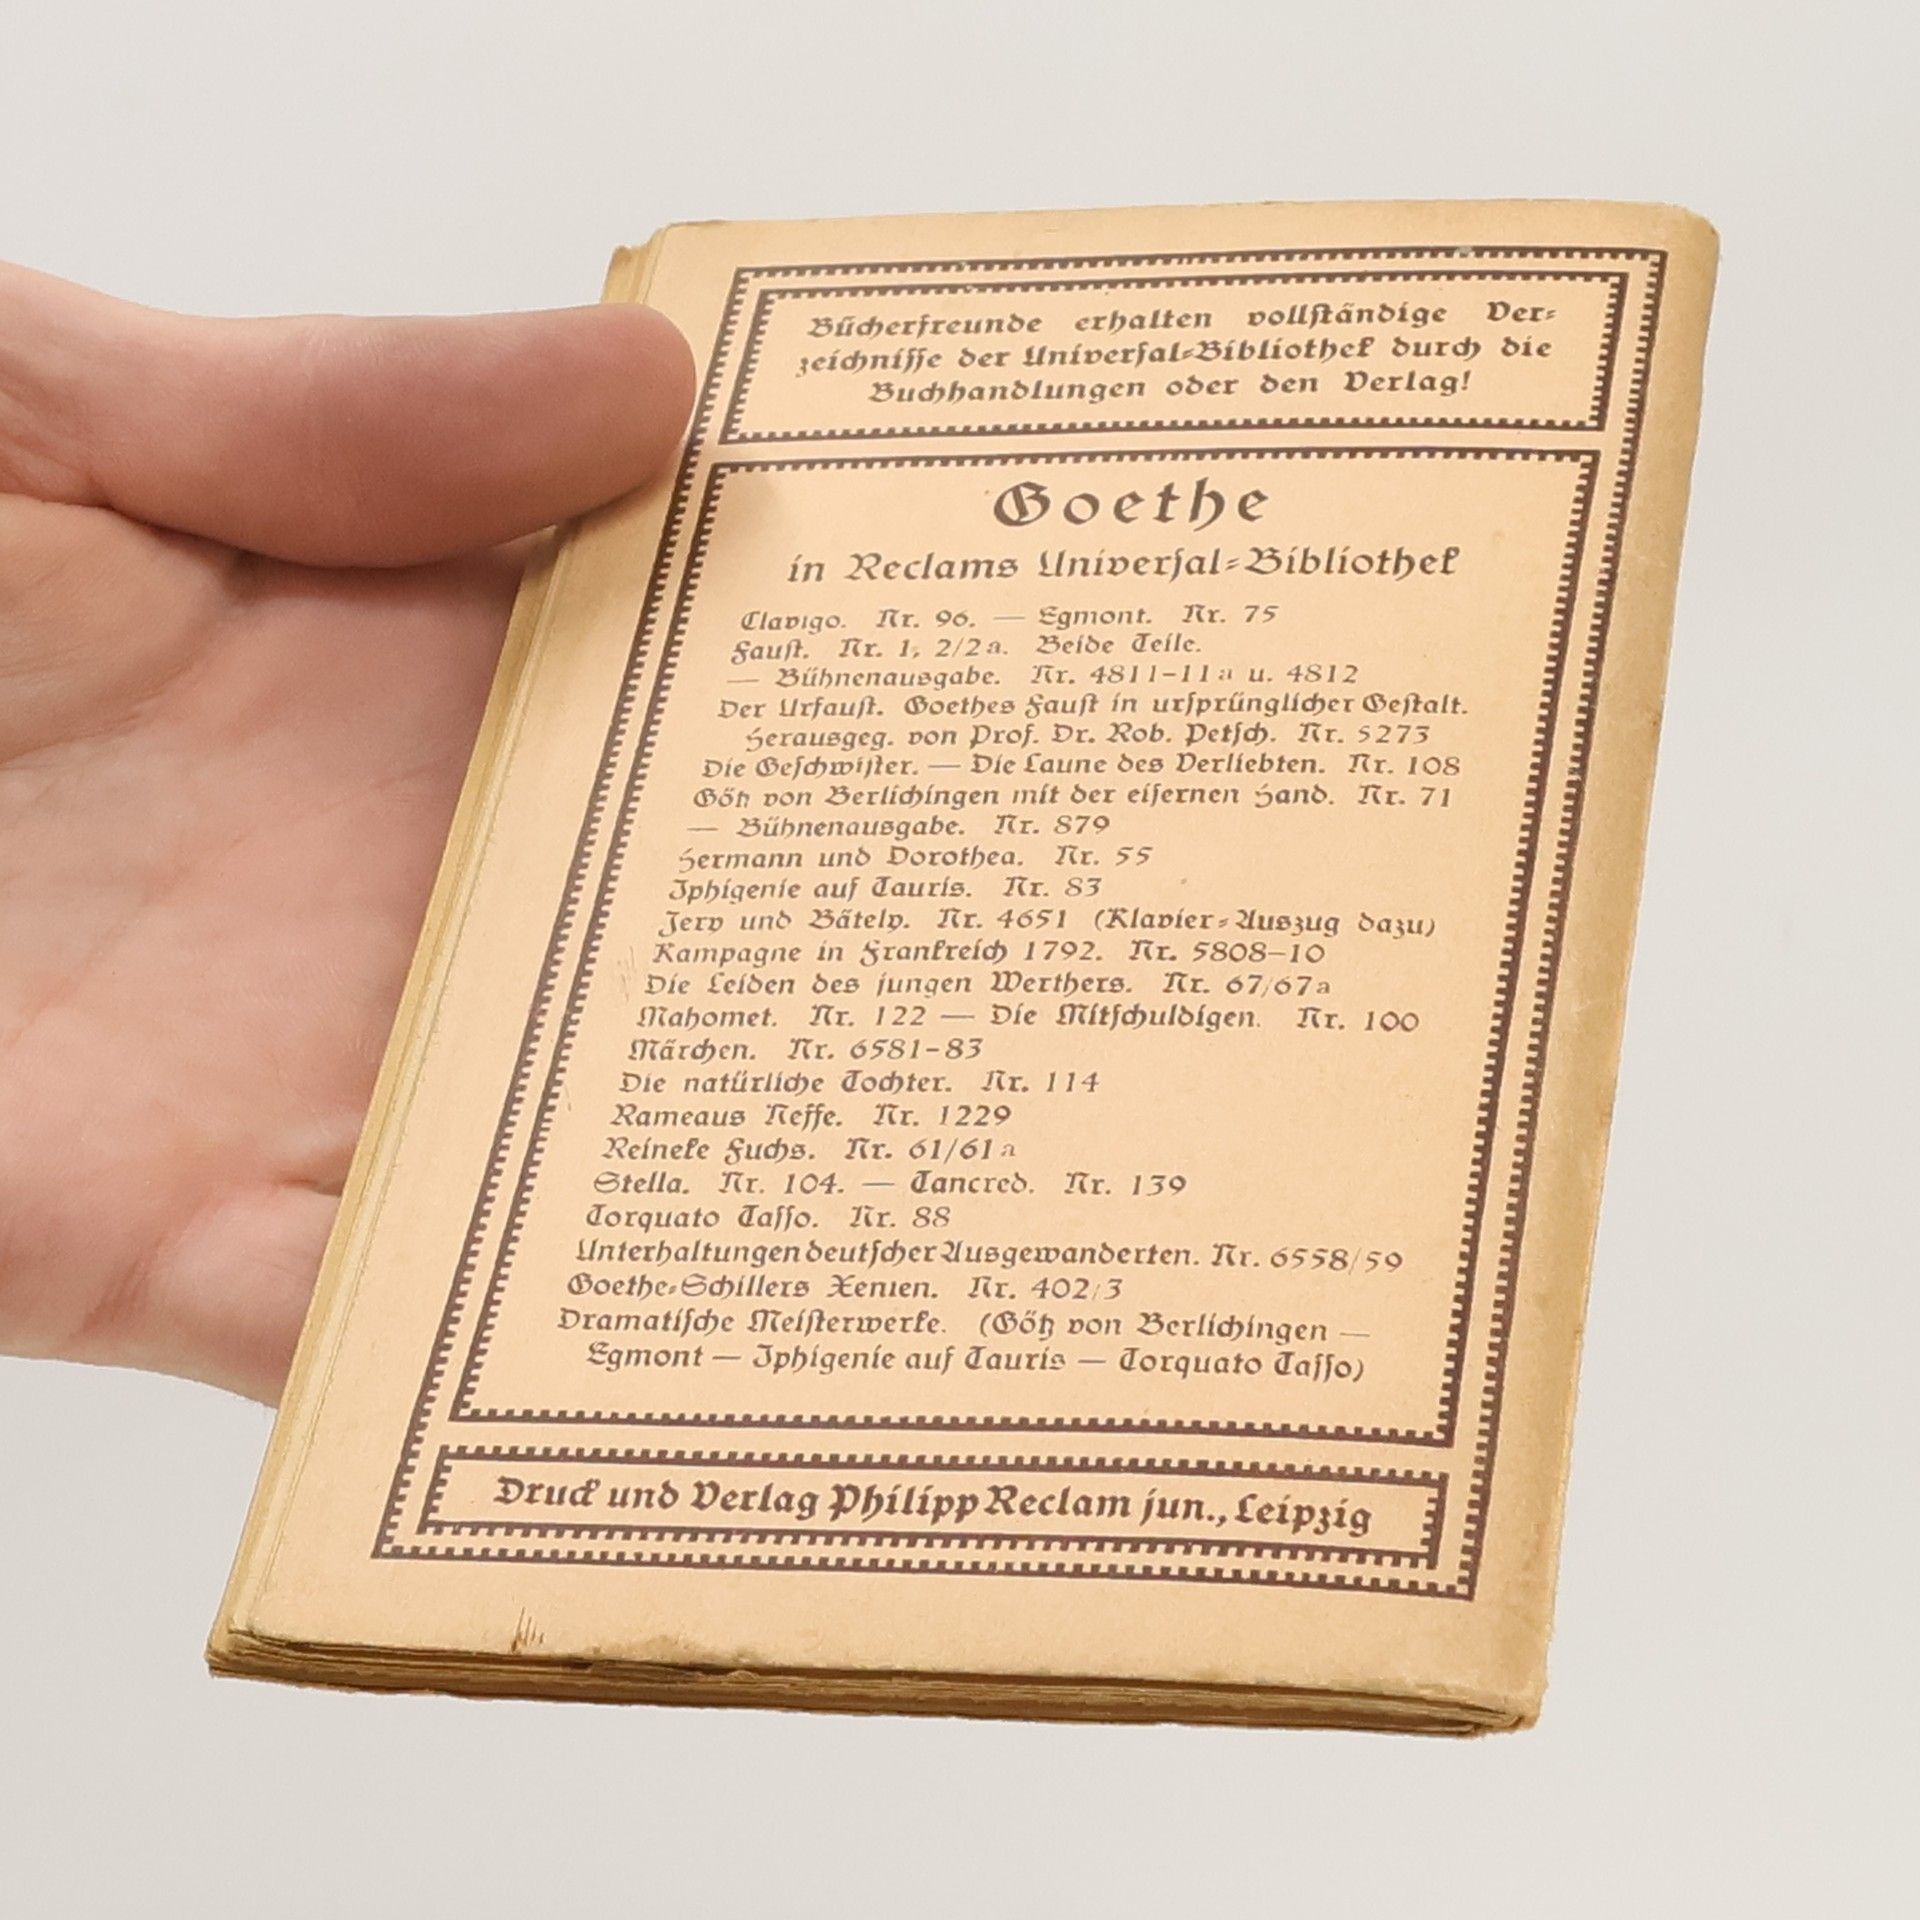 Bücherfreunde erhalten vollſtändige Ver⸗
zeichniſſe der Univerſal⸗Bibliothek durch die
Buchhandlungen oder den Verlag!
Goethe
in Reclams Univerſal⸗Bibliothek
Clavigo. Nr. 96. — Egmont. Nr. 75
Fauſt. Nr. 1, 2/2a. Beide Teile.
— Bühnenausgabe. Nr. 4811–11a u. 4812
Der Urfauſt. Goethes Fauſt in urſprünglicher Geſtalt.
Herausgeg. von Prof. Dr. Rob. Petſch. Nr. 5273
Die Geſchwiſter. — Die Laune des Verliebten. Nr. 108
Götz von Berlichingen mit der eiſernen Hand. Nr. 71
— Bühnenausgabe. Nr. 879
Hermann und Dorothea. Nr. 55
Iphigenie auf Tauris. Nr. 83
Jery und Bätely. Nr. 4651 (Klavier⸗Auszug dazu)
Kampagne in Frankreich 1792. Nr. 5808–10
Die Leiden des jungen Werthers. Nr. 67/67a
Mahomet. Nr. 122 — Die Mitſchuldigen. Nr. 100
Märchen. Nr. 6581–83
Die natürliche Tochter. Nr. 114
Rameaus Neffe. Nr. 1229
Reineke Fuchs. Nr. 61/61a
Stella. Nr. 104. — Tancred. Nr. 139
Torquato Taſſo. Nr. 88
Unterhaltungen deutſcher Ausgewanderten. Nr. 6558/59
Goethe⸗Schillers Xenien. Nr. 402/3
Dramatiſche Meiſterwerke. (Götz von Berlichingen —
Egmont — Iphigenie auf Tauris — Torquato Taſſo)
Druck und Verlag Philipp Reclam jun., Leipzig